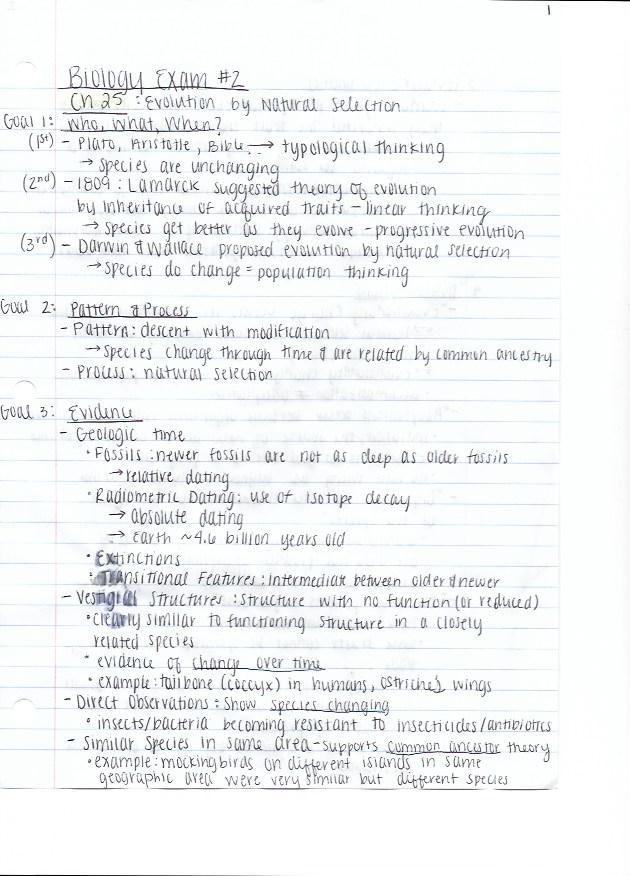 1
Biology Exam #2
Ch 25: Evolution by Natural Selection
Goal 1: Who, What, When?
(1st) - Plato, Aristotle, Bible... → typological thinking
→ Species are unchanging
(2nd) - 1809: Lamarck suggested theory of evolution
by inheritance of acquired traits - linear thinking
→ Species get better as they evolve - progressive evolution
(3rd) - Darwin & Wallace proposed evolution by natural selection
→ Species do change = population thinking
Goal 2: Pattern & Process
- Pattern: descent with modification
→ Species change through time & are related by common ancestry
- Process: natural selection
Goal 3: Evidence
- Geologic time
• Fossils: newer fossils are not as deep as older fossils
→ relative dating
• Radiometric Dating: use of isotope decay
→ absolute dating
→ Earth ~4.6 billion years old
• Extinctions
• Transitional Features: intermediate between older & newer
- Vestigial Structures: Structure with no function (or reduced)
• clearly similar to functioning structure in a closely
related species
• evidence of change over time
• example: tailbone (coccyx) in humans, ostriche's wings
- Direct Observations: Show species changing
• insects/bacteria becoming resistant to insecticides/antibiotics
- Similar Species in same area - supports common ancestor theory
• example: mockingbirds on different islands in same
geographic area were very similar but different species